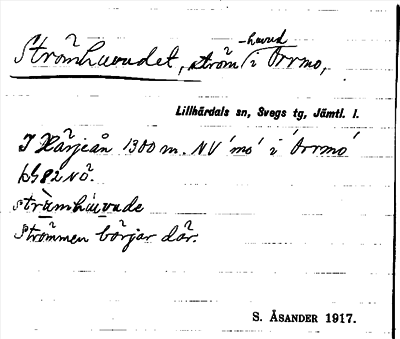 -huvud
Strömhuvudet, ström i Orrmo,
Lillhärdals sn, Svegs tg, Jämtl. l.
I Härjeån 1300 m. NV 'mo' i 'Orrmo'
82 NÖ.
Strömmen börjar där.
S. ÅSANDER 1917.